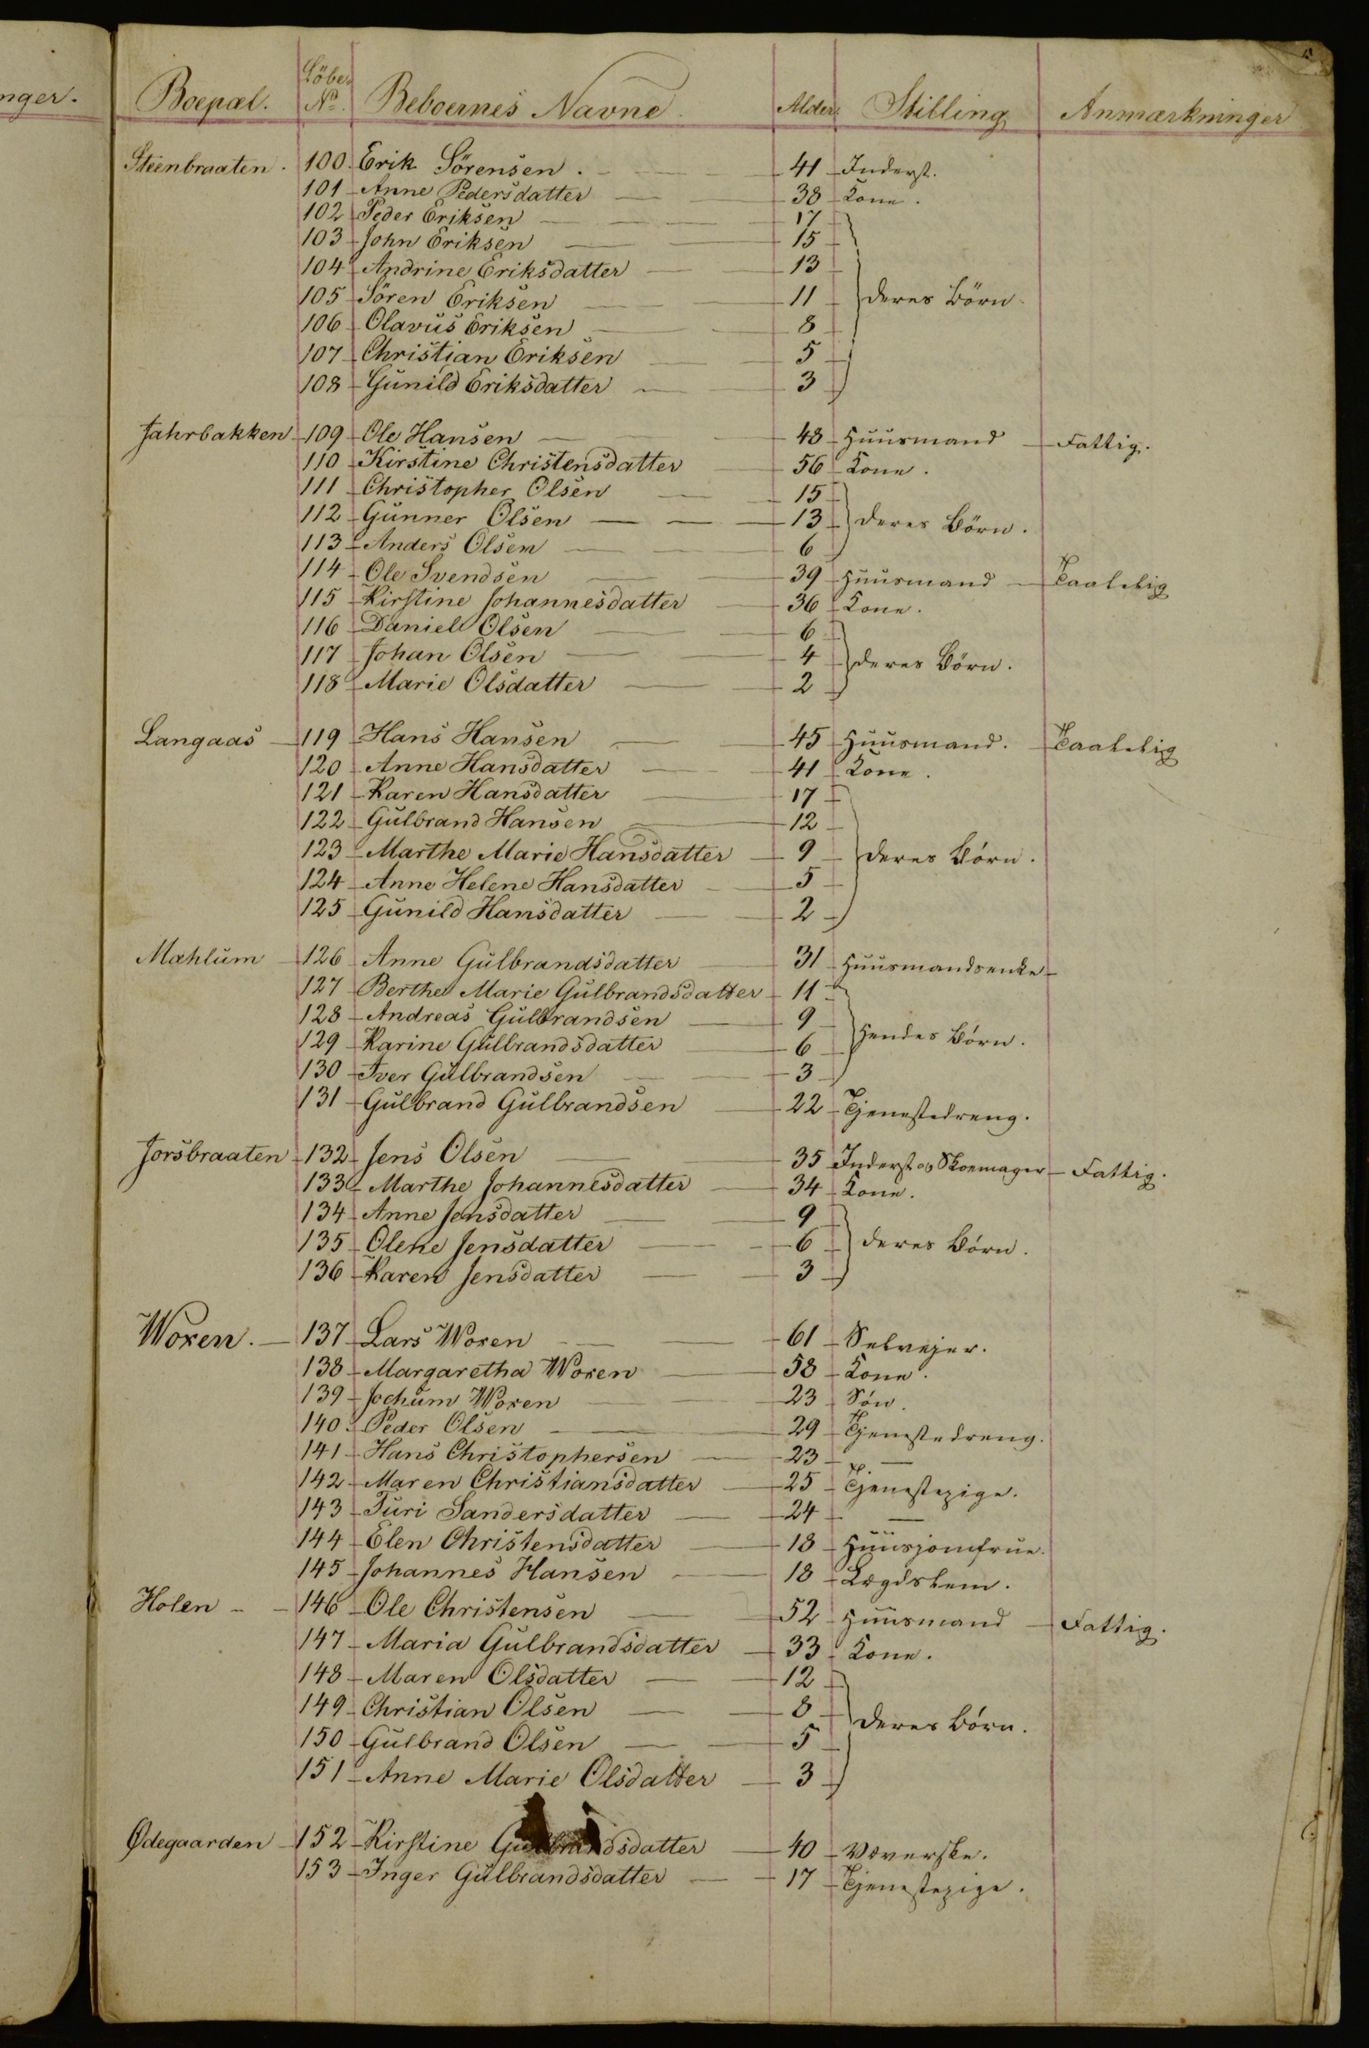 nger.
Boepæl. Löbe No. Beboernes Navne. Alder. Stilling Anmærkninger
Steenbraaten. 100. Erik Sörensen. 41 Inderst.
101 Anne Pedersdatter 38 Kone.
102 Peder Eriksen 17
103 John Eriksen 15
104 Andrine Eriksdatter 13
105 Sören Eriksen 11 deres Börn
106 Olavus Eriksen 8
107 Christian Eriksen 5
108 Gunild Eriksdatter 3
Jahrbakken 109 Ole Hansen 48 Huusmand Fattig.
110 Kirstine Christensdatter 56 Kone.
111 Christopher Olsen 15
112 Gunner Olsen 13 deres Börn.
113 Anders Olsen 6
114 Ole Svendsen 39 Huusmand Taalelig
115 Kirstine Johannesdatter 36 Kone.
116 Daniel Olsen 6
117 Johan Olsen 4 deres Börn.
118 Marie Olsdatter 2
Langaas 119 Hans Hansen 45 Huusmand. Taalelig
120 Anne Hansdatter 41 Kone.
121 Karen Hansdatter 17
122 Gulbrand Hansen 12
123 Marthe Marie Hansdatter 9 deres Börn.
124 Anne Helene Hansdatter 5
125 Gunild Hansdatter 2
Mæhlum 126 Anne Gulbrandsdatter 31 Huusmandsenke
127 Berthe Marie Gulbrandsdatter 11
128 Andreas Gulbrandsen 9 Hendes Börn.
129 Karine Gulbrandsdatter 6
130 Iver Gulbrandsen 3
131 Gulbrand Gulbrandsen 22 Tjenestedreng.
Jorsbraaten 132 Jens Olsen 35 Inderst og Skoemager Fattig.
133 Marthe Johannesdatter 34 Kone.
134 Anne Jensdatter 9
135 Olene Jensdatter 6 deres Börn.
136 Karen Jensdatter 3
Woxen. 137 Lars Woxen 61 Selvejer.
138 Margaretha Woxen 58 Kone.
139 Jochum Woxen 23 Sön.
140. Peder Olsen 29 Tjenestedreng.
141 Hans Christophersen 23 —
142 Maren Christiansdatter 25 Tjenestepige.
143 Turi Sandersdatter 24 —
144 Elen Christensdatter 18 Huusjomfrue.
145 Johannes Hansen 18 Lægdslem.
Holen 146 Ole Christensen 52 Huusmand Fattig.
147 Maria Gulbrandsdatter 33 Kone.
148 Maren Olsdatter 12
149 Christian Olsen 8 deres Börn.
150 Gulbrand Olsen 5
151 Anne Marie Olsdatter 3
Ødegaarden 152 Kirstine Gulbrandsdatter 40 Væverske.
153 Inger Gulbrandsdatter 17 Tjenestepige.